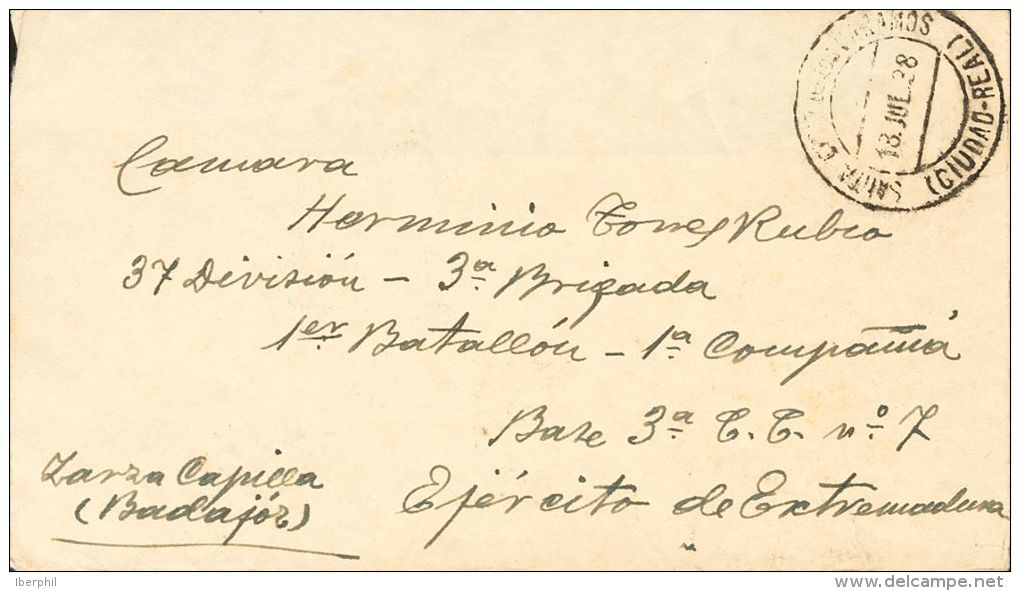 SANTA CRUZ DE LOS CÁÑAMOS (CIUDAD-REAL)
18 JUL 38
Camara
Herminio Torres Rubio
37 División - 3ª Brigada
1er Batallón - 1ª Compañiá
Base 3ª C.C. nº 7
Ejército de Extremadura
Zarza Capilla
(Badajóz)
Iberphil
delcampe.net